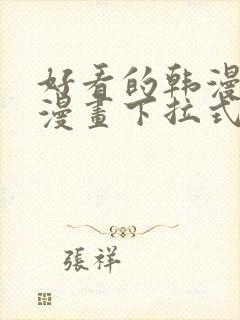 好看的韩漫
漫畫下拉式
張祥